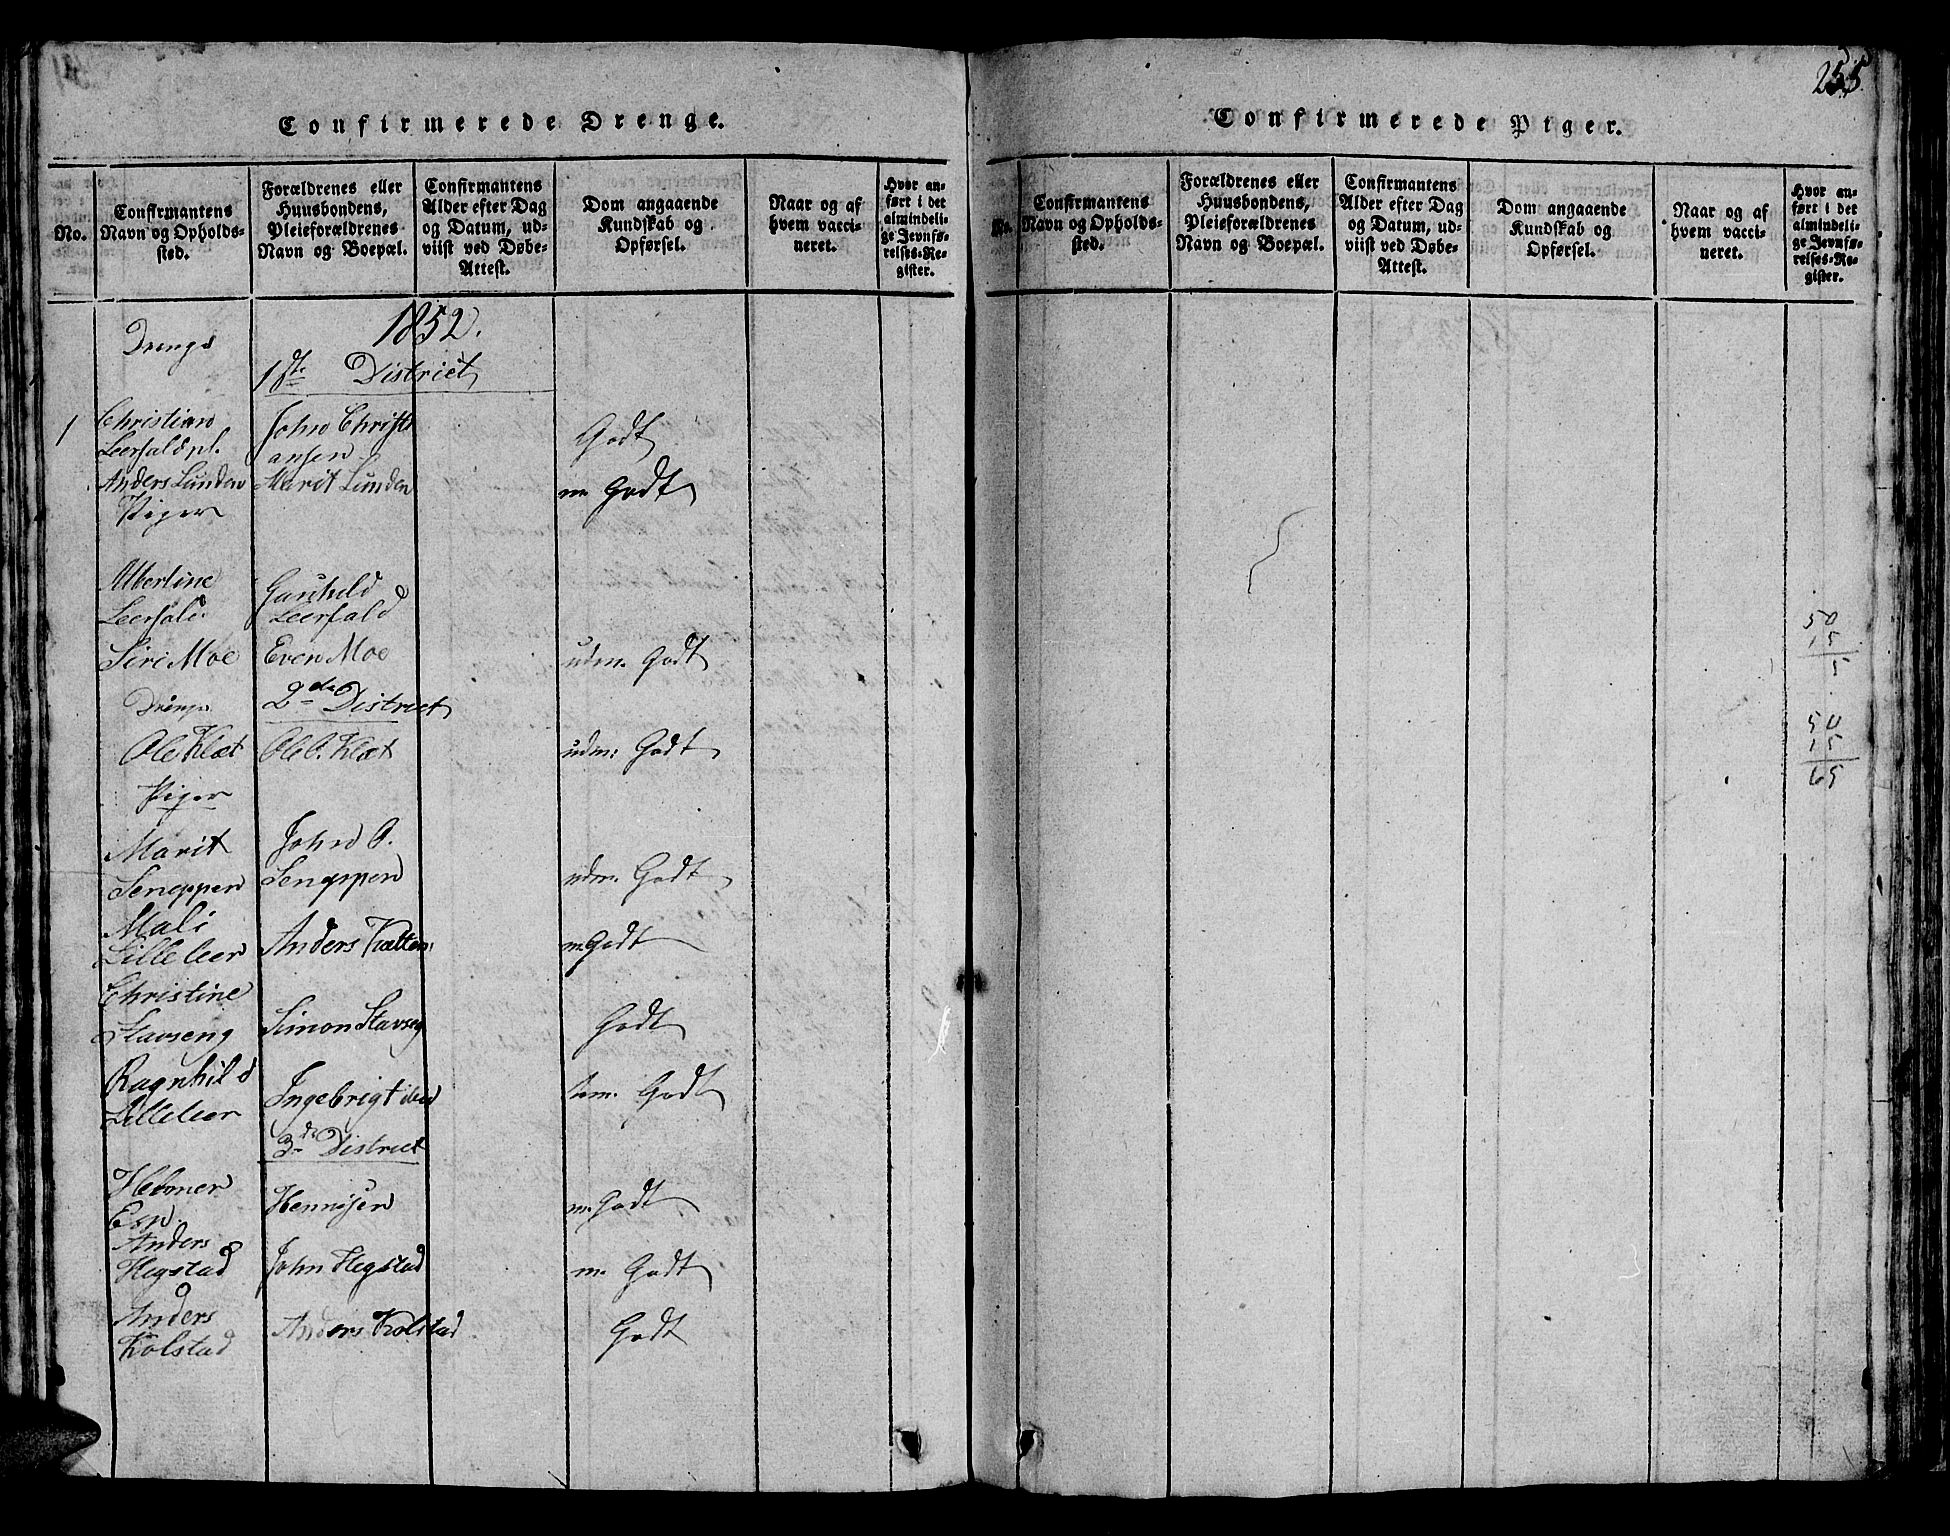 255
Confirmerede Drenge.
No.
Confirmantens
Navn og Opholds-
sted.
Forældrenes eller
Huusbondens,
Pleieforældrenes
Navn og Boepæl.
Confirmantens
Alder efter Dag
og Datum, ud-
viist ved Døbe-
Attest.
Dom angaaende
Kundskab og
Opførsel.
Naar og af
hvem vacci-
neret.
Hvor an-
ført i det
almindeli-
ge Jevnfø-
relses-Re-
gister.
Drenge 1852.
1ste District
1 Christian John Christi
Leerfald pl. ansen Godt
Anders Lunden Marit Lunden m. Godt
Piger
Albertine Gunhild
Leerfald Leerfald
Siri Moe Even Moe udm. Godt
Drenge 2de District
Ole Klæt Ole O. Klæt udm: Godt
Piger
Marit John O.
Sengppen Sengppen udm. Godt
Mali
Lilleleer Anders m. Godt
Christine
Stavseng Simon Stavseng Godt
Ragnhild
Lilleleer Ingebrigt Godt
3de District
Helmer
Hennisen m. Godt
Anders
Hegstad John Hegstad m. Godt
Anders
Kolstad Anders Kolstad Godt
Confirmerede Piger.
No.
Confirmantens
Navn og Opholds-
sted.
Forældrenes eller
Huusbondens,
Pleieforældrenes
Navn og Boepæl.
Confirmantens
Alder efter Dag
og Datum, ud-
viist ved Døbe-
Attest.
Dom angaaende
Kundskab og
Opførsel.
Naar og af
hvem vacci-
neret.
Hvor an-
ført i det
almindeli-
ge Jevnfø-
relses-Re-
gister.
50
15
5
50
15
65